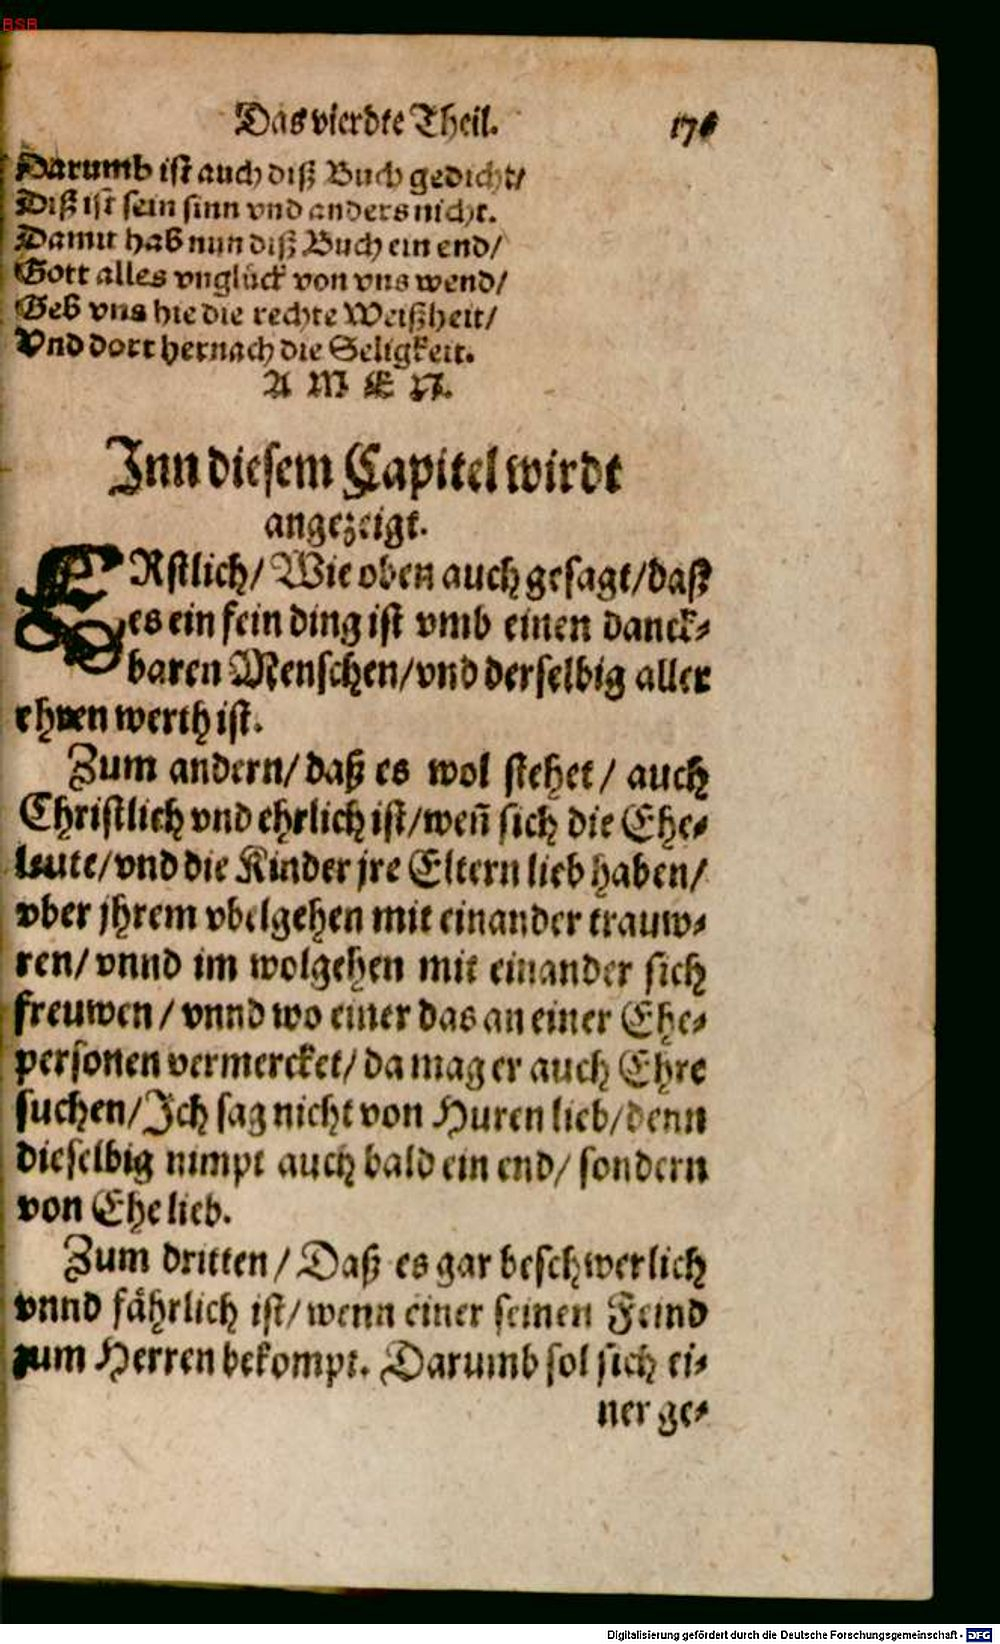 BSB
Das vierdte Theil. 176
Darumb ist auch diß Buch gedicht/
Diß ist sein sinn vnd anders nicht.
Damit hab nun diß Buch ein end/
Gott alles vnglück von vns wend/
Geb vns hie die rechte Weißheit/
Vnd dort hernach die Seligkeit.
A M E N.
Inn diesem Capitel wirdt
angezeigt.
ERstlich/ Wie oben auch gesagt/daß
es ein fein ding ist vmb einen danck⸗
baren Menschen/vnd derselbig aller
ehren werth ist.
Zum andern/ daß es wol stehet/ auch
Christlich vnd ehrlich ist/weñ sich die Ehe⸗
leute/vnd die Kinder jre Eltern lieb haben/
vber jhrem vbelgehen mit einander trauw⸗
ren/ vnnd im wolgehen mit einander sich
freuwen/ vnnd wo einer das an einer Ehe⸗
personen vermercket/ da mag er auch Ehre
suchen/Ich sag nicht von Huren lieb/denn
dieselbig nimpt auch bald ein end/ sondern
von Ehe lieb.
Zum dritten/ Daß es gar beschwerlich
vnnd fährlich ist/ wenn einer seinen Feind
zum Herren bekompt. Darumb sol sich ei⸗
ner ge⸗
Digitalisierung gefördert durch die Deutsche Forschungsgemeinschaft - DFG